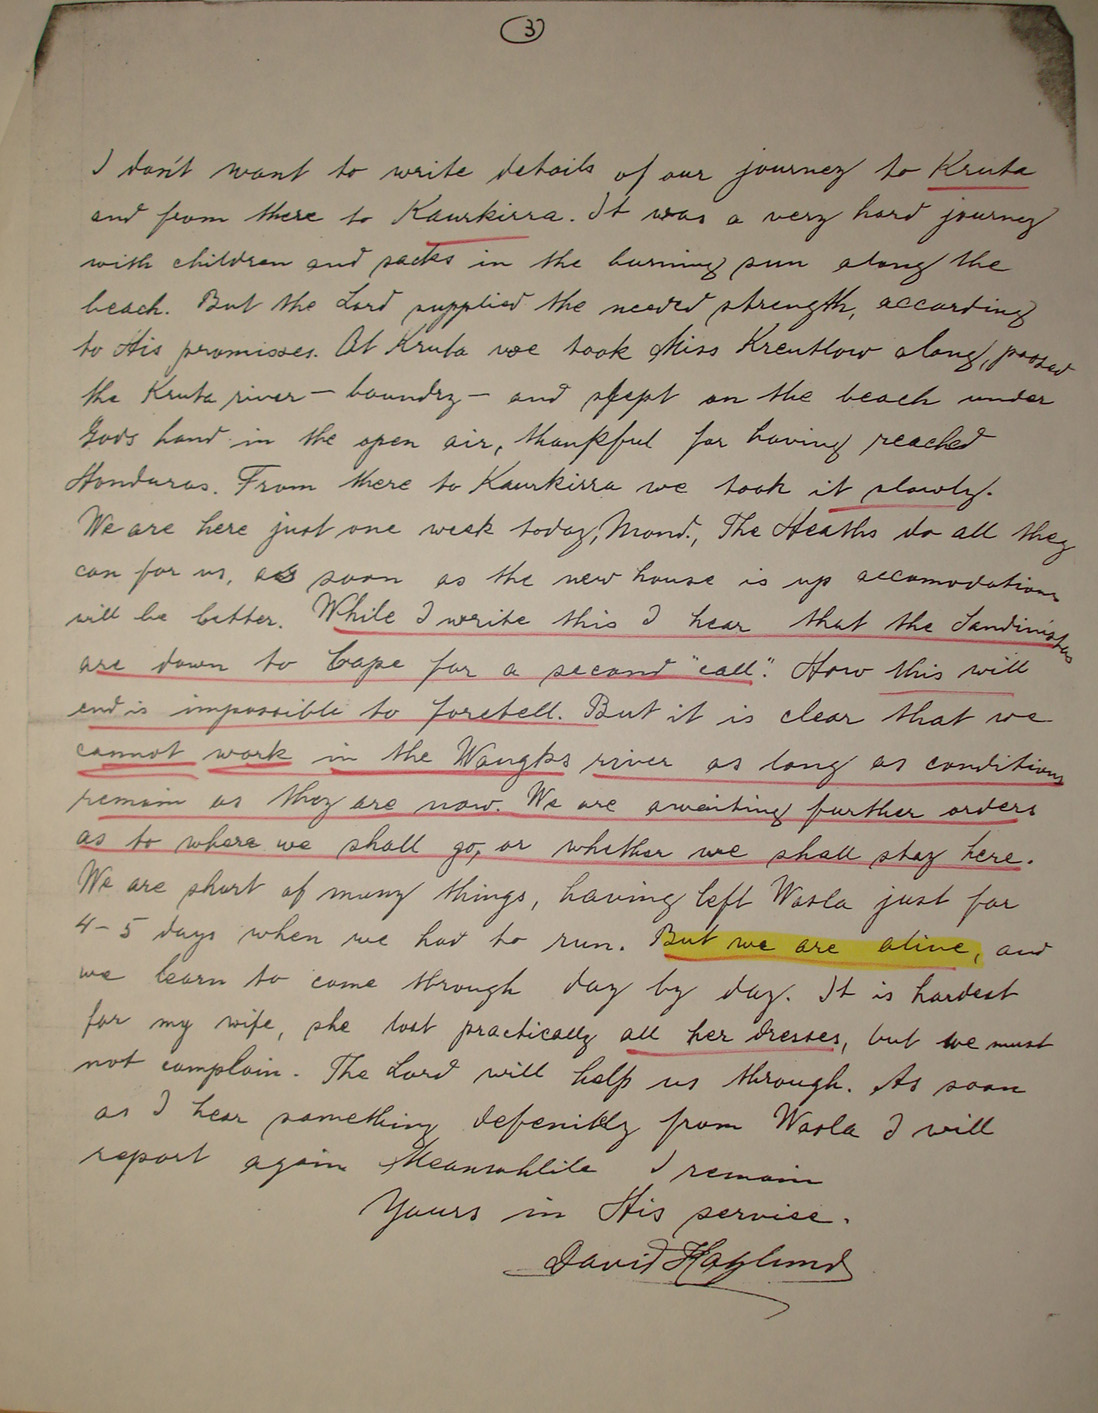 3
I don't want to write details of our journey to Kruta
and from there to Kaurkirra. It was a very hard journey
with children and sacks in the burning sun along the
beach. But the Lord supplied the needed strength, according
to His promisses. At Kruta we took Miss Kreutlow along, passed
the Kruta river – boundry – and slept on the beach under
Gods hand in the open air, thankful for having reached
Honduras. From there to Kaurkirra we took it slowly.
We are here just one week today, Mond., The Heaths do all they
can for us, as soon as the new house is up accomodations
will be better. While I write this I hear that the Sandinistas
are down to Cape for a second "call". How this will
end is impossible to foretell. But it is clear that we
cannot work in the Wangks river as long as conditions
remain as they are now. We are awaiting further orders
as to where we shall go, or whether we shall stay here.
We are short of many things, having left Wasla just for
4–5 days when we had to run. But we are alive, and
we learn to come through day by day. It is hardest
for my wife, she lost practically all her dresses, but we must
not complain. The Lord will help us through. As soon
as I hear something defenitly from Wasla I will
report again Meanwhlile I remain
Yours in His service.
David Haglund